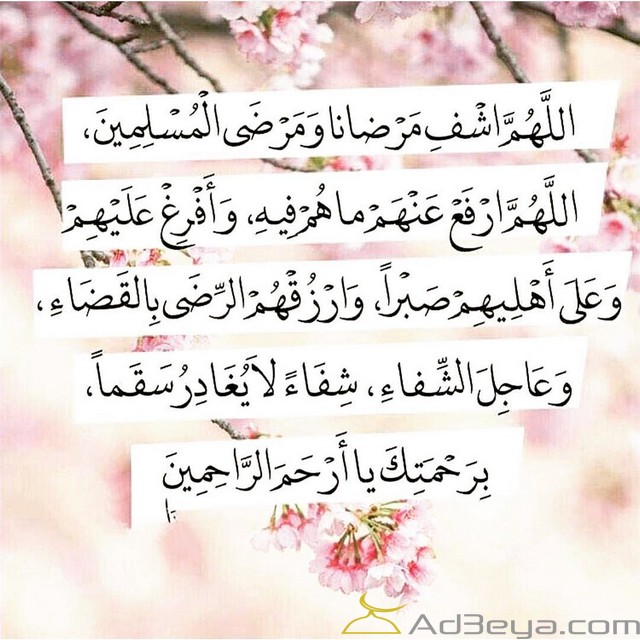 اللَّهُمَّ اشْفِ مَرْضانا وَمَرْضَى الْمُسْلِمِينَ،
اللَّهُمَّ ارْفَعْ عَنْهَمْ ما هُمْ فِيهِ، وَأَفْرِغْ عَلَيْهِمْ
وَعَلَى أَهْلِيهِمْ صَبْراً، وَارْزُقْهُمْ الرِّضَى بِالقَضَاءِ،
وَعَاجِلَ الشِّفاءِ، شِفَاءً لاَ يُغَادِرُ سَقَماً،
بِرَحْمَتِكَ يا أَرْحَمَ الرَّاحِمِينَ
Ad3eya.com